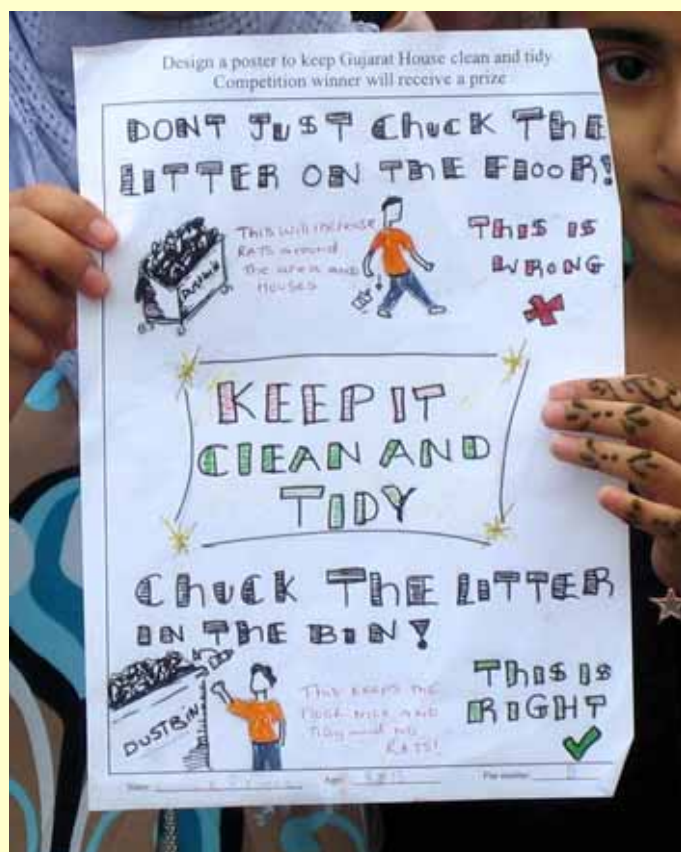 Design a poster to keep Gujarat House clean and tidy
Competition winner will receive a prize
DONT JUST ChucK ThE
LITTER ON THE FlOOR!
THIS will increase
RATS around
the area and
HOUSES
DUSTBIN
ThIS IS
WRONG
KEEP IT
ClEAN AND
TIDY
ChucK ThE LITTER
IN THE BIN!
DUSTBIN
THIS KEEPS THE
FLOOR NICE AND
Tidy and NO
RATS!
ThIS IS
RIGHT
Name:
Age:
Flat number